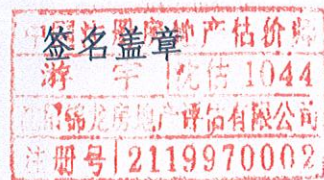 签名盖章
中国注册房地产估价师
游宇 估 1044
锦龙房地产评估有限公司
注册号 2119970002